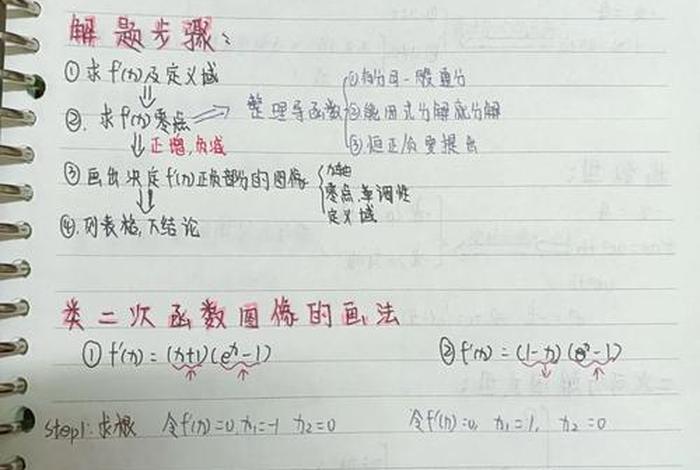 解题步骤:
①求f'(x)及定义域
②.求f'(x)零点 ⇒ 整理导函数 { ①有分母一般通分
②能因式分解就分解
③恒正负要提出
正增,负减
③画出决定f'(x)正负部分的图像 { x轴
零点,单调性
定义域
④.列表格,下结论
类二次函数图像的画法
①f'(x)=(x+1)(eˣ-1) ②f'(x)=(1-x)(eˣ-1)
Step1:求根 令f'(x)=0, x₁=-1 x₂=0 令f'(x)=0, x₁=1, x₂=0